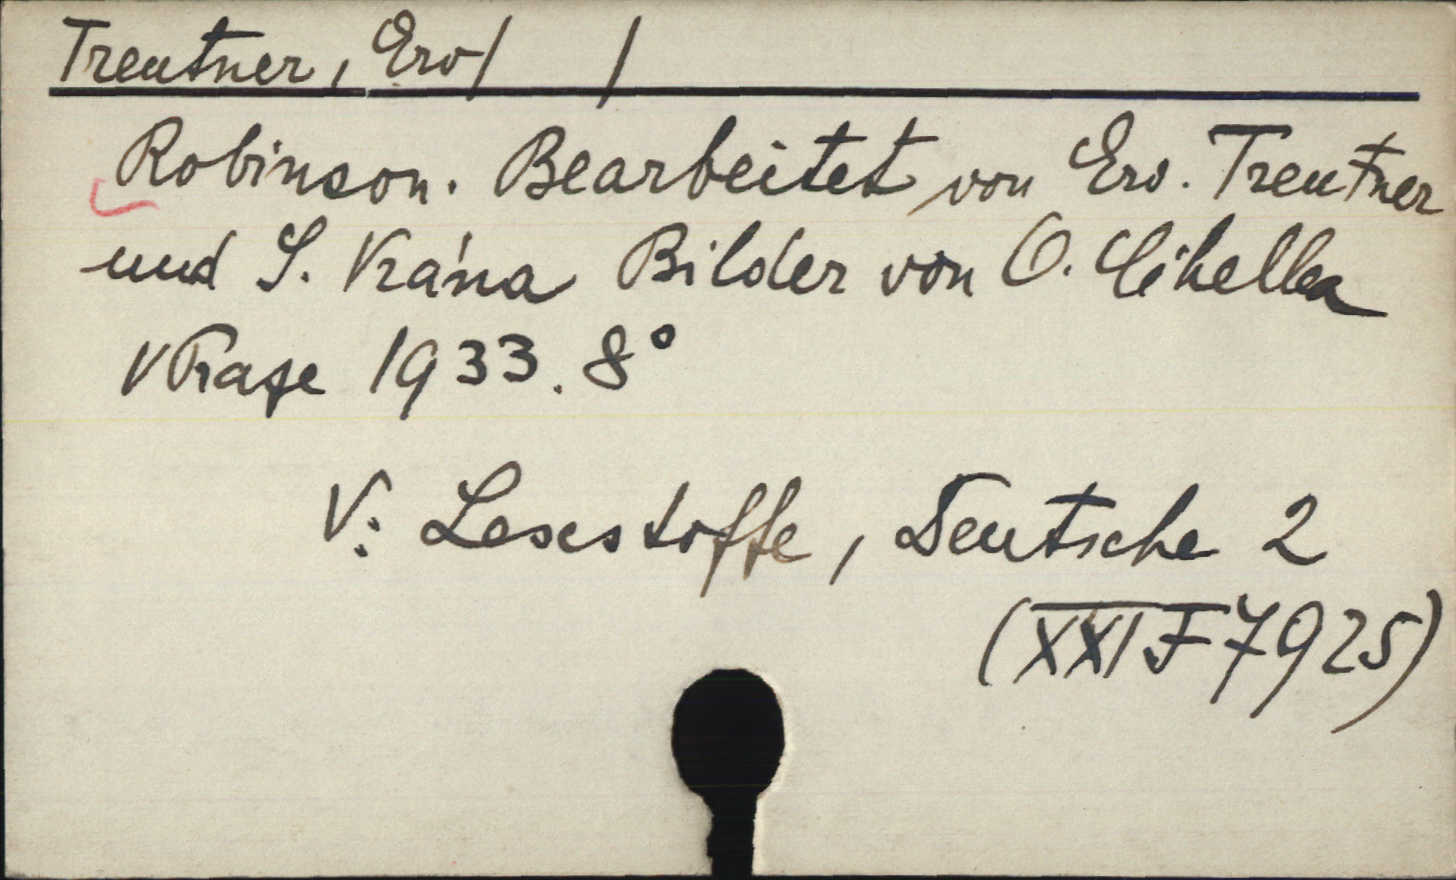 Treutner, Erv/ /
Robinson. Bearbeitet von Erv. Treutner
und S. Vrána Bilder von O. Cihelka
V Prage 1933. 8°
V: Lesestoffe, Deutsche 2
(XXI F 7925)